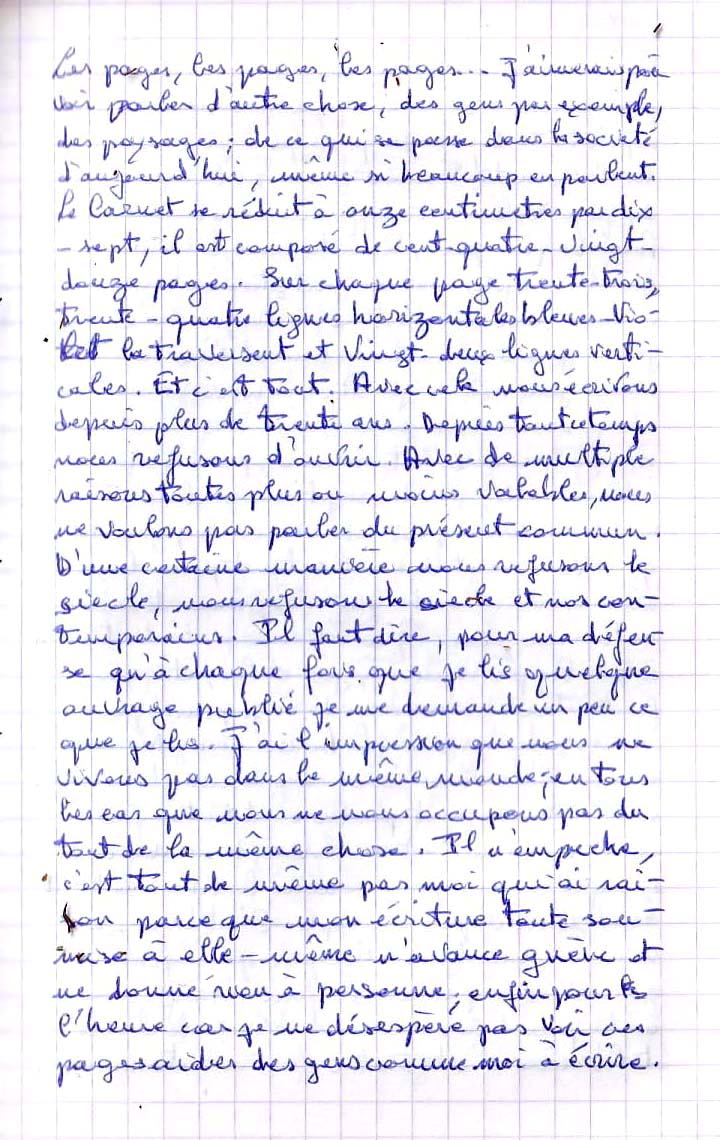 1
Les pages, les pages, les pages... J'aimerais pou
voir parler d'autre chose, des gens par exemple,
des paysages; de ce qui se passe dans la société
d'aujourd'hui, même si beaucoup en parlent.
Le Carnet se réduit à onze centimètres par dix
-sept, il est composé de cent-quatre-vingt-
douze pages. Sur chaque page trente-trois,
trente-quatre lignes horizontales bleues-vio-
let la traversent et vingt-deux lignes verti-
cales. Et c'est tout. Avec cela nous écrivons
depuis plus de trente ans. Depuis tout ce temps
nous refusons d'ouvrir. Avec de multiple
raisons toutes plus ou moins valables, nous
ne voulons pas parler du présent commun.
D'une certaine manière nous refusons le
siècle, nous refusons le siècle et nos con-
temporains. Il faut dire, pour ma défen
se qu'à chaque fois que je lis quelque
ouvrage publié je me demande un peu ce
que je lis. J'ai l'impression que nous ne
vivons pas dans le même monde; en tous
les cas que nous ne nous occupons pas du
tout de la même chose. Il n'empêche,
c'est tout de même pas moi qui ai rai-
son parce que mon écriture toute sou-
mise à elle-même n'avance guère et
ne donne rien à personne; enfin pour
l'heure car je ne désespère pas voir ces
pages aider des gens comme moi à écrire.